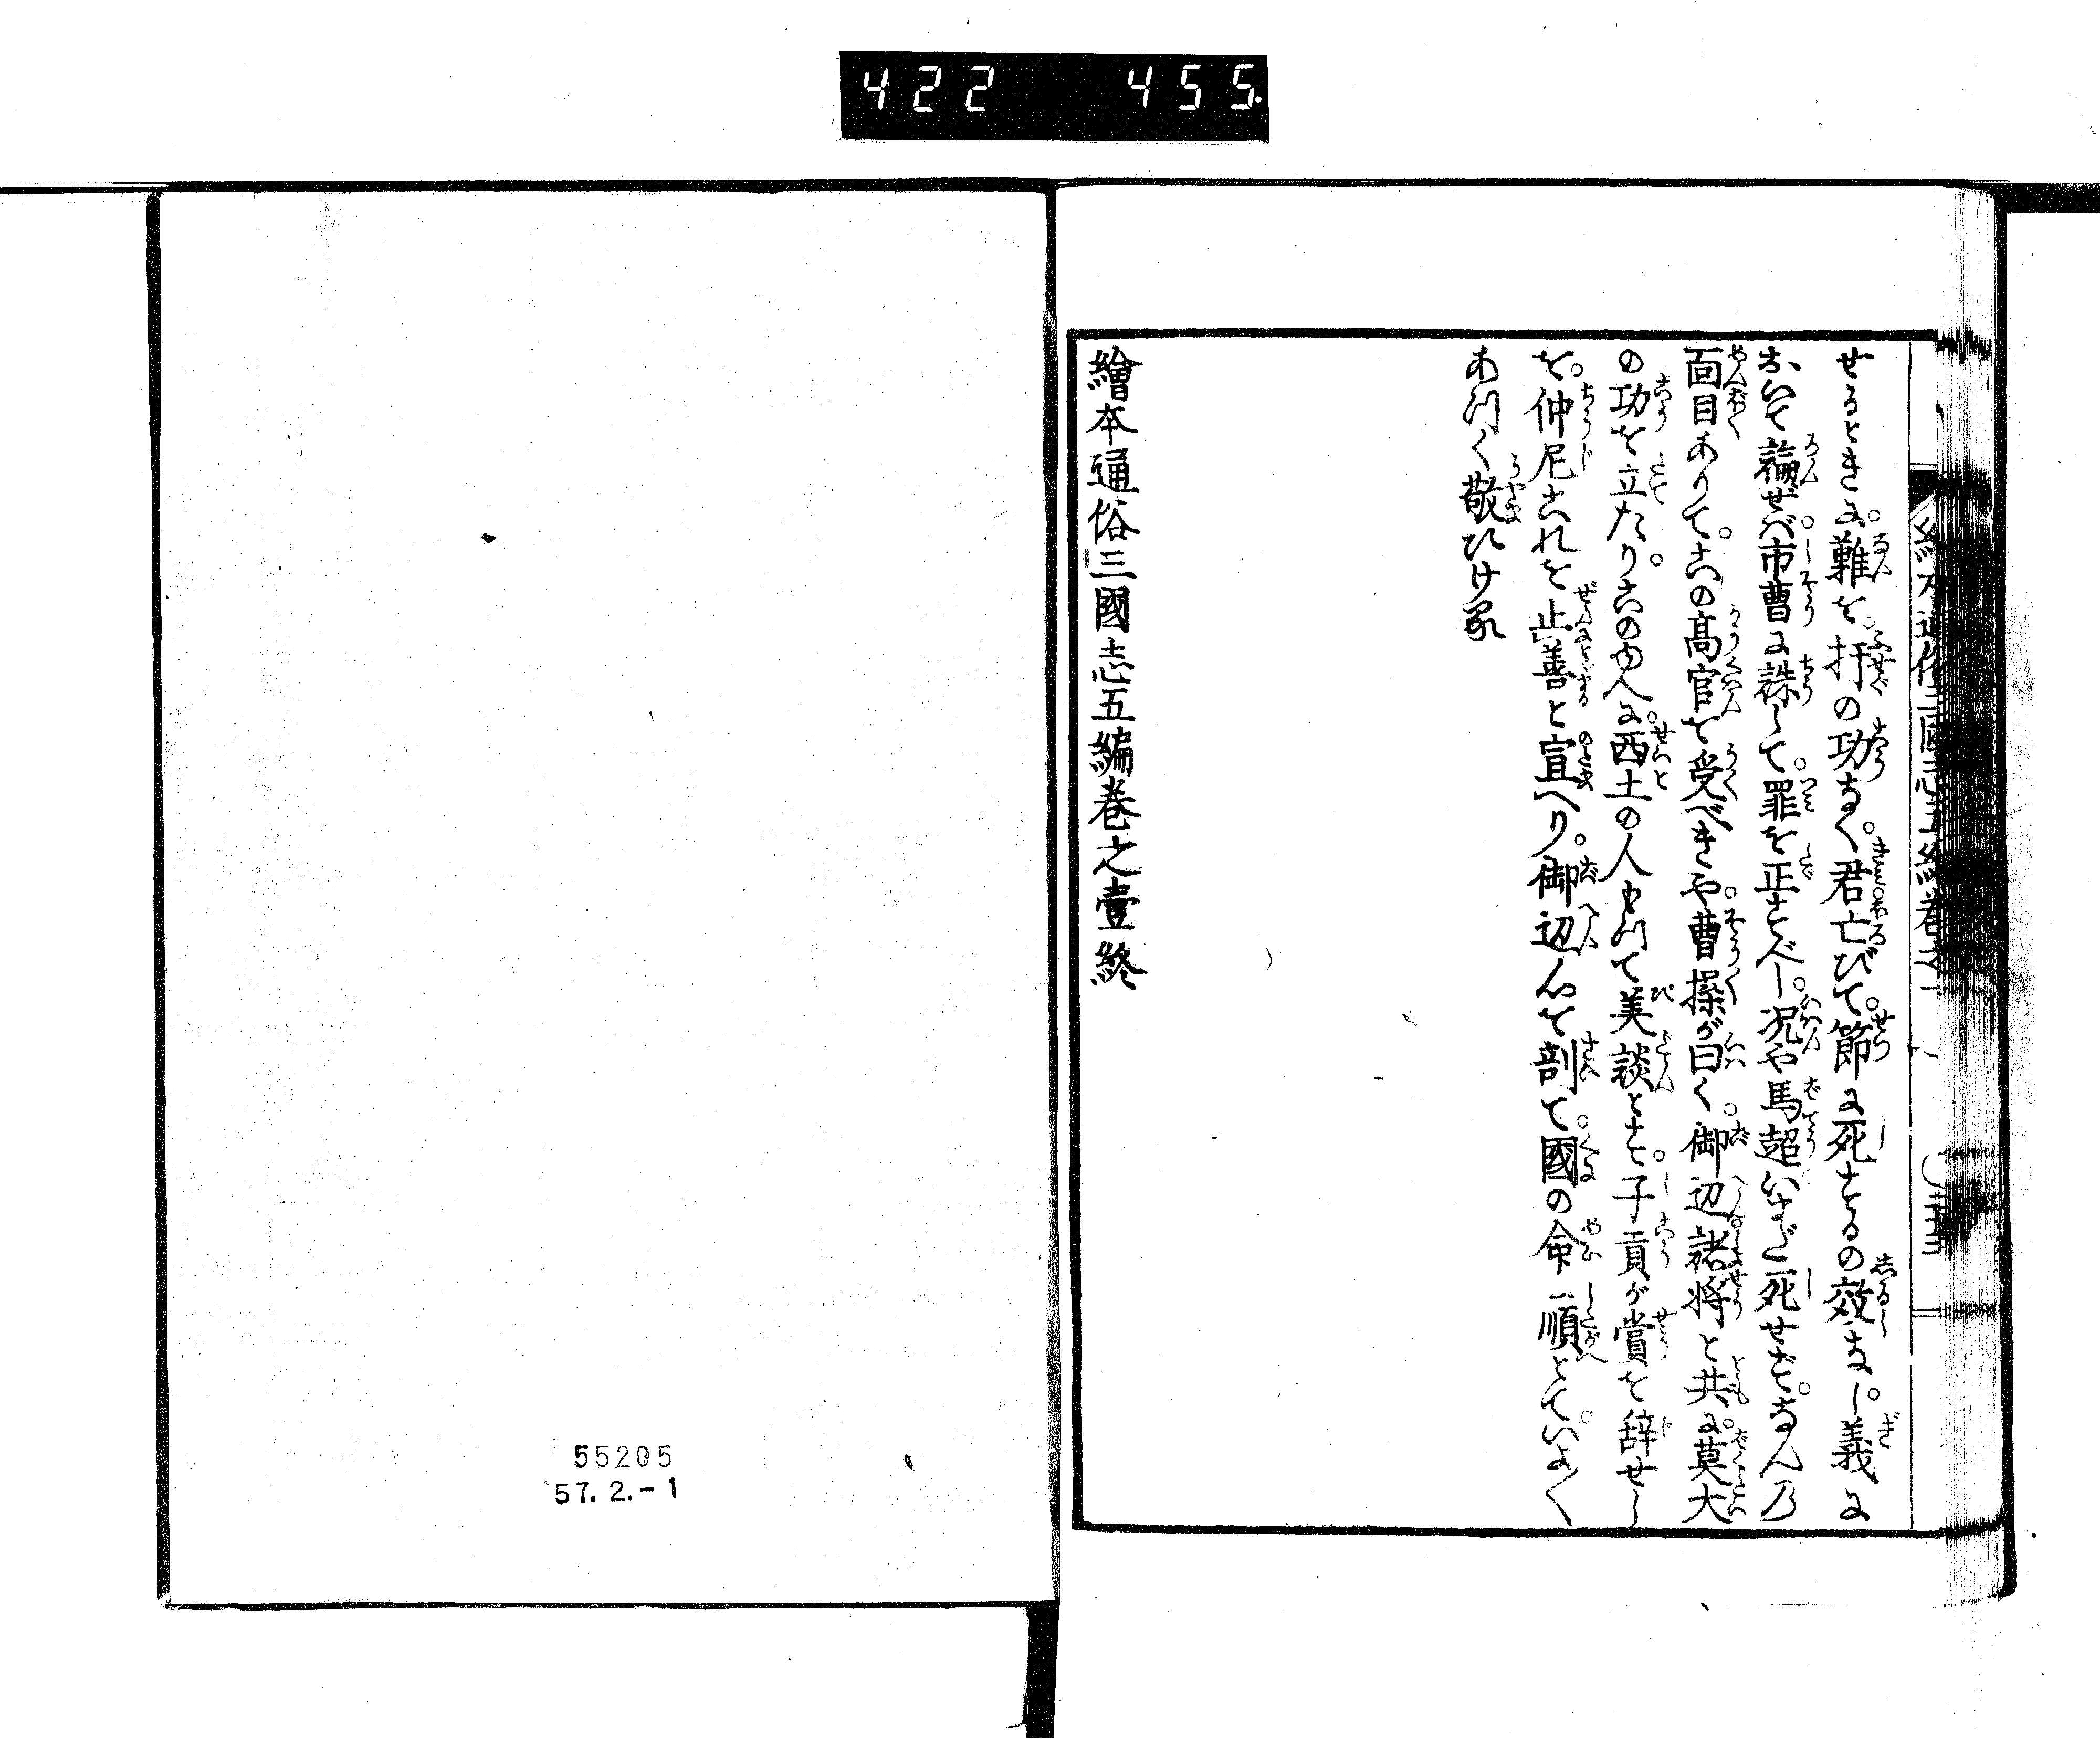 422 455
せるときに。難を。扞の功なく。君亡びて。節に死するの效なし。義に
おいて論ぜば。市曹に誅して。罪を正すべし。况や馬超いまだ死せず。なんの
面目ありて。この高官を受べきや。曹操が曰く。御辺諸将と共に。莫大
の功を立たり。この中人に。西土の人もつて美談とす。子貢が賞を辞せし
を。仲尼これを止善と宣へり。御辺心を剖て。國の命に順とて。いよ〱
あつく敬ひける
繪本通俗三國志五編巻之壹終
55205
57.2.-1